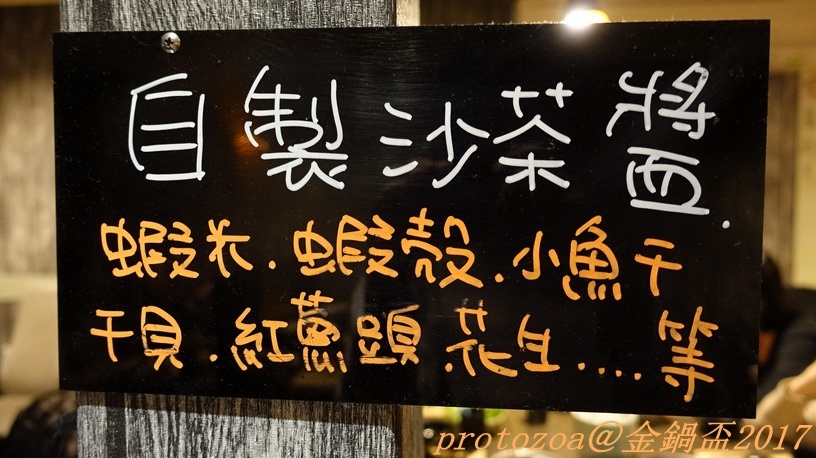 自製沙茶醬.
蝦米.蝦殼.小魚干
干貝.紅蔥頭.花生....等
protozoa@金鍋盃2017